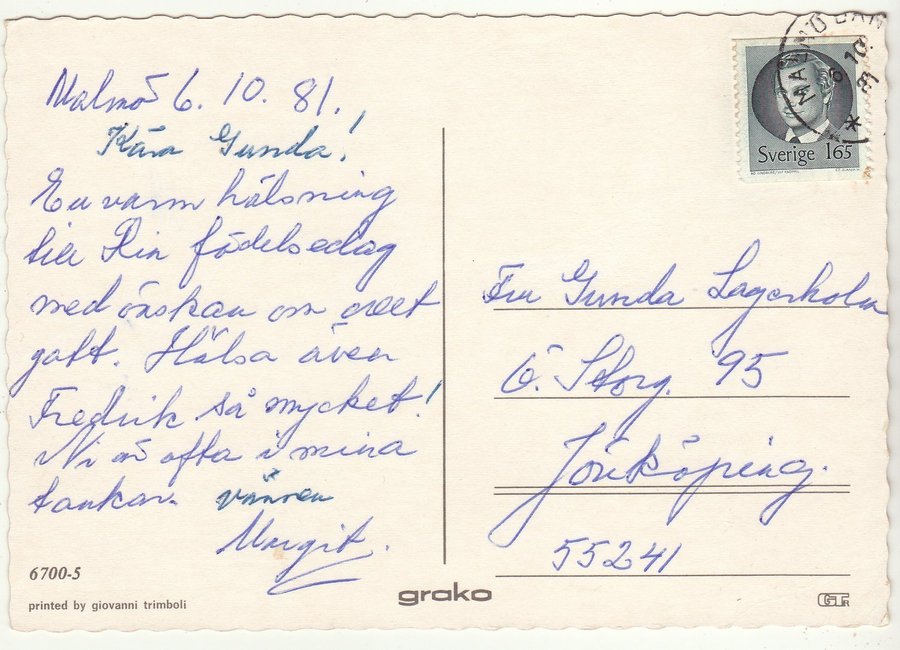 Malmö 6. 10. 81.
Kära Gunda!
En varm hälsning
till Din födelsedag
med önskan om allt
gott. Hälsa även
Fredrik så mycket!
Ni är ofta i mina
tankar. vännen
Margit.
6700-5
printed by giovanni trimboli
grako
MALMÖ
6.10.
Sverige 165
Fru Gunda Lagerholm
Ö. Storg. 95
Jönköping.
55241